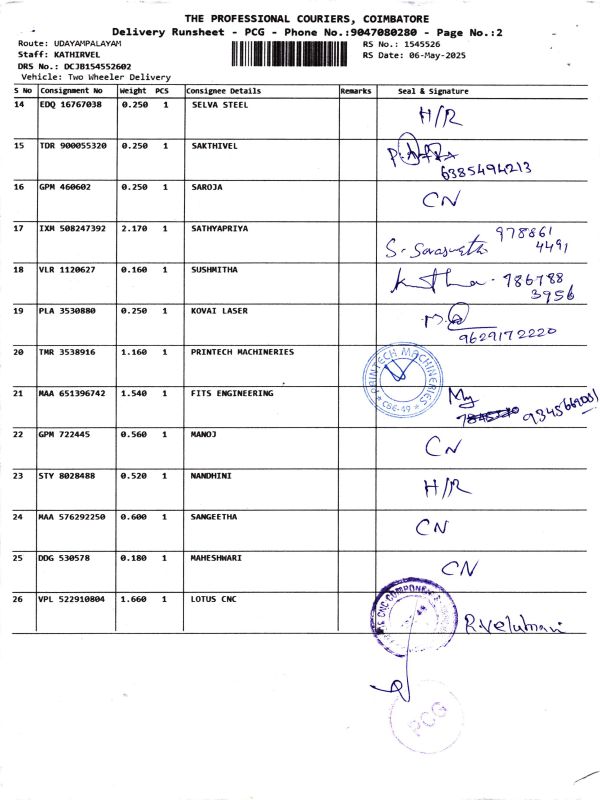 THE PROFESSIONAL COURIERS, COIMBATORE
Delivery Runsheet - PCG - Phone No.:9047080280 - Page No.:2
Route: UDAYAMPALAYAM
Staff: KATHIRVEL
DRS No.: DCJB154552602
Vehicle: Two Wheeler Delivery
RS No.: 1545526
RS Date: 06-May-2025
S No Consignment No Weight PCS Consignee Details Remarks Seal & Signature
14 EDQ 16767038 0.250 1 SELVA STEEL H/R
15 TDR 900055320 0.250 1 SAKTHIVEL
6385494213
16 GPM 460602 0.250 1 SAROJA CN
17 IXM 508247392 2.170 1 SATHYAPRIYA S. Saraswathi 978861
4491
18 VLR 1120627 0.160 1 SUSHMITHA 986788
3956
19 PLA 3530880 0.250 1 KOVAI LASER
9629172220
20 TMR 3538916 1.160 1 PRINTECH MACHINERIES PRINTECH MACHINERIES
CBE-49
21 MAA 651396742 1.540 1 FITS ENGINEERING
22 GPM 722445 0.560 1 MANOJ CN
23 STY 8028488 0.520 1 NANDHINI H/R
24 MAA 576292250 0.600 1 SANGEETHA CN
25 DDG 530578 0.180 1 MAHESHWARI CN
26 VPL 522910804 1.660 1 LOTUS CNC CNC COMPONENT R.Velumani
PCG